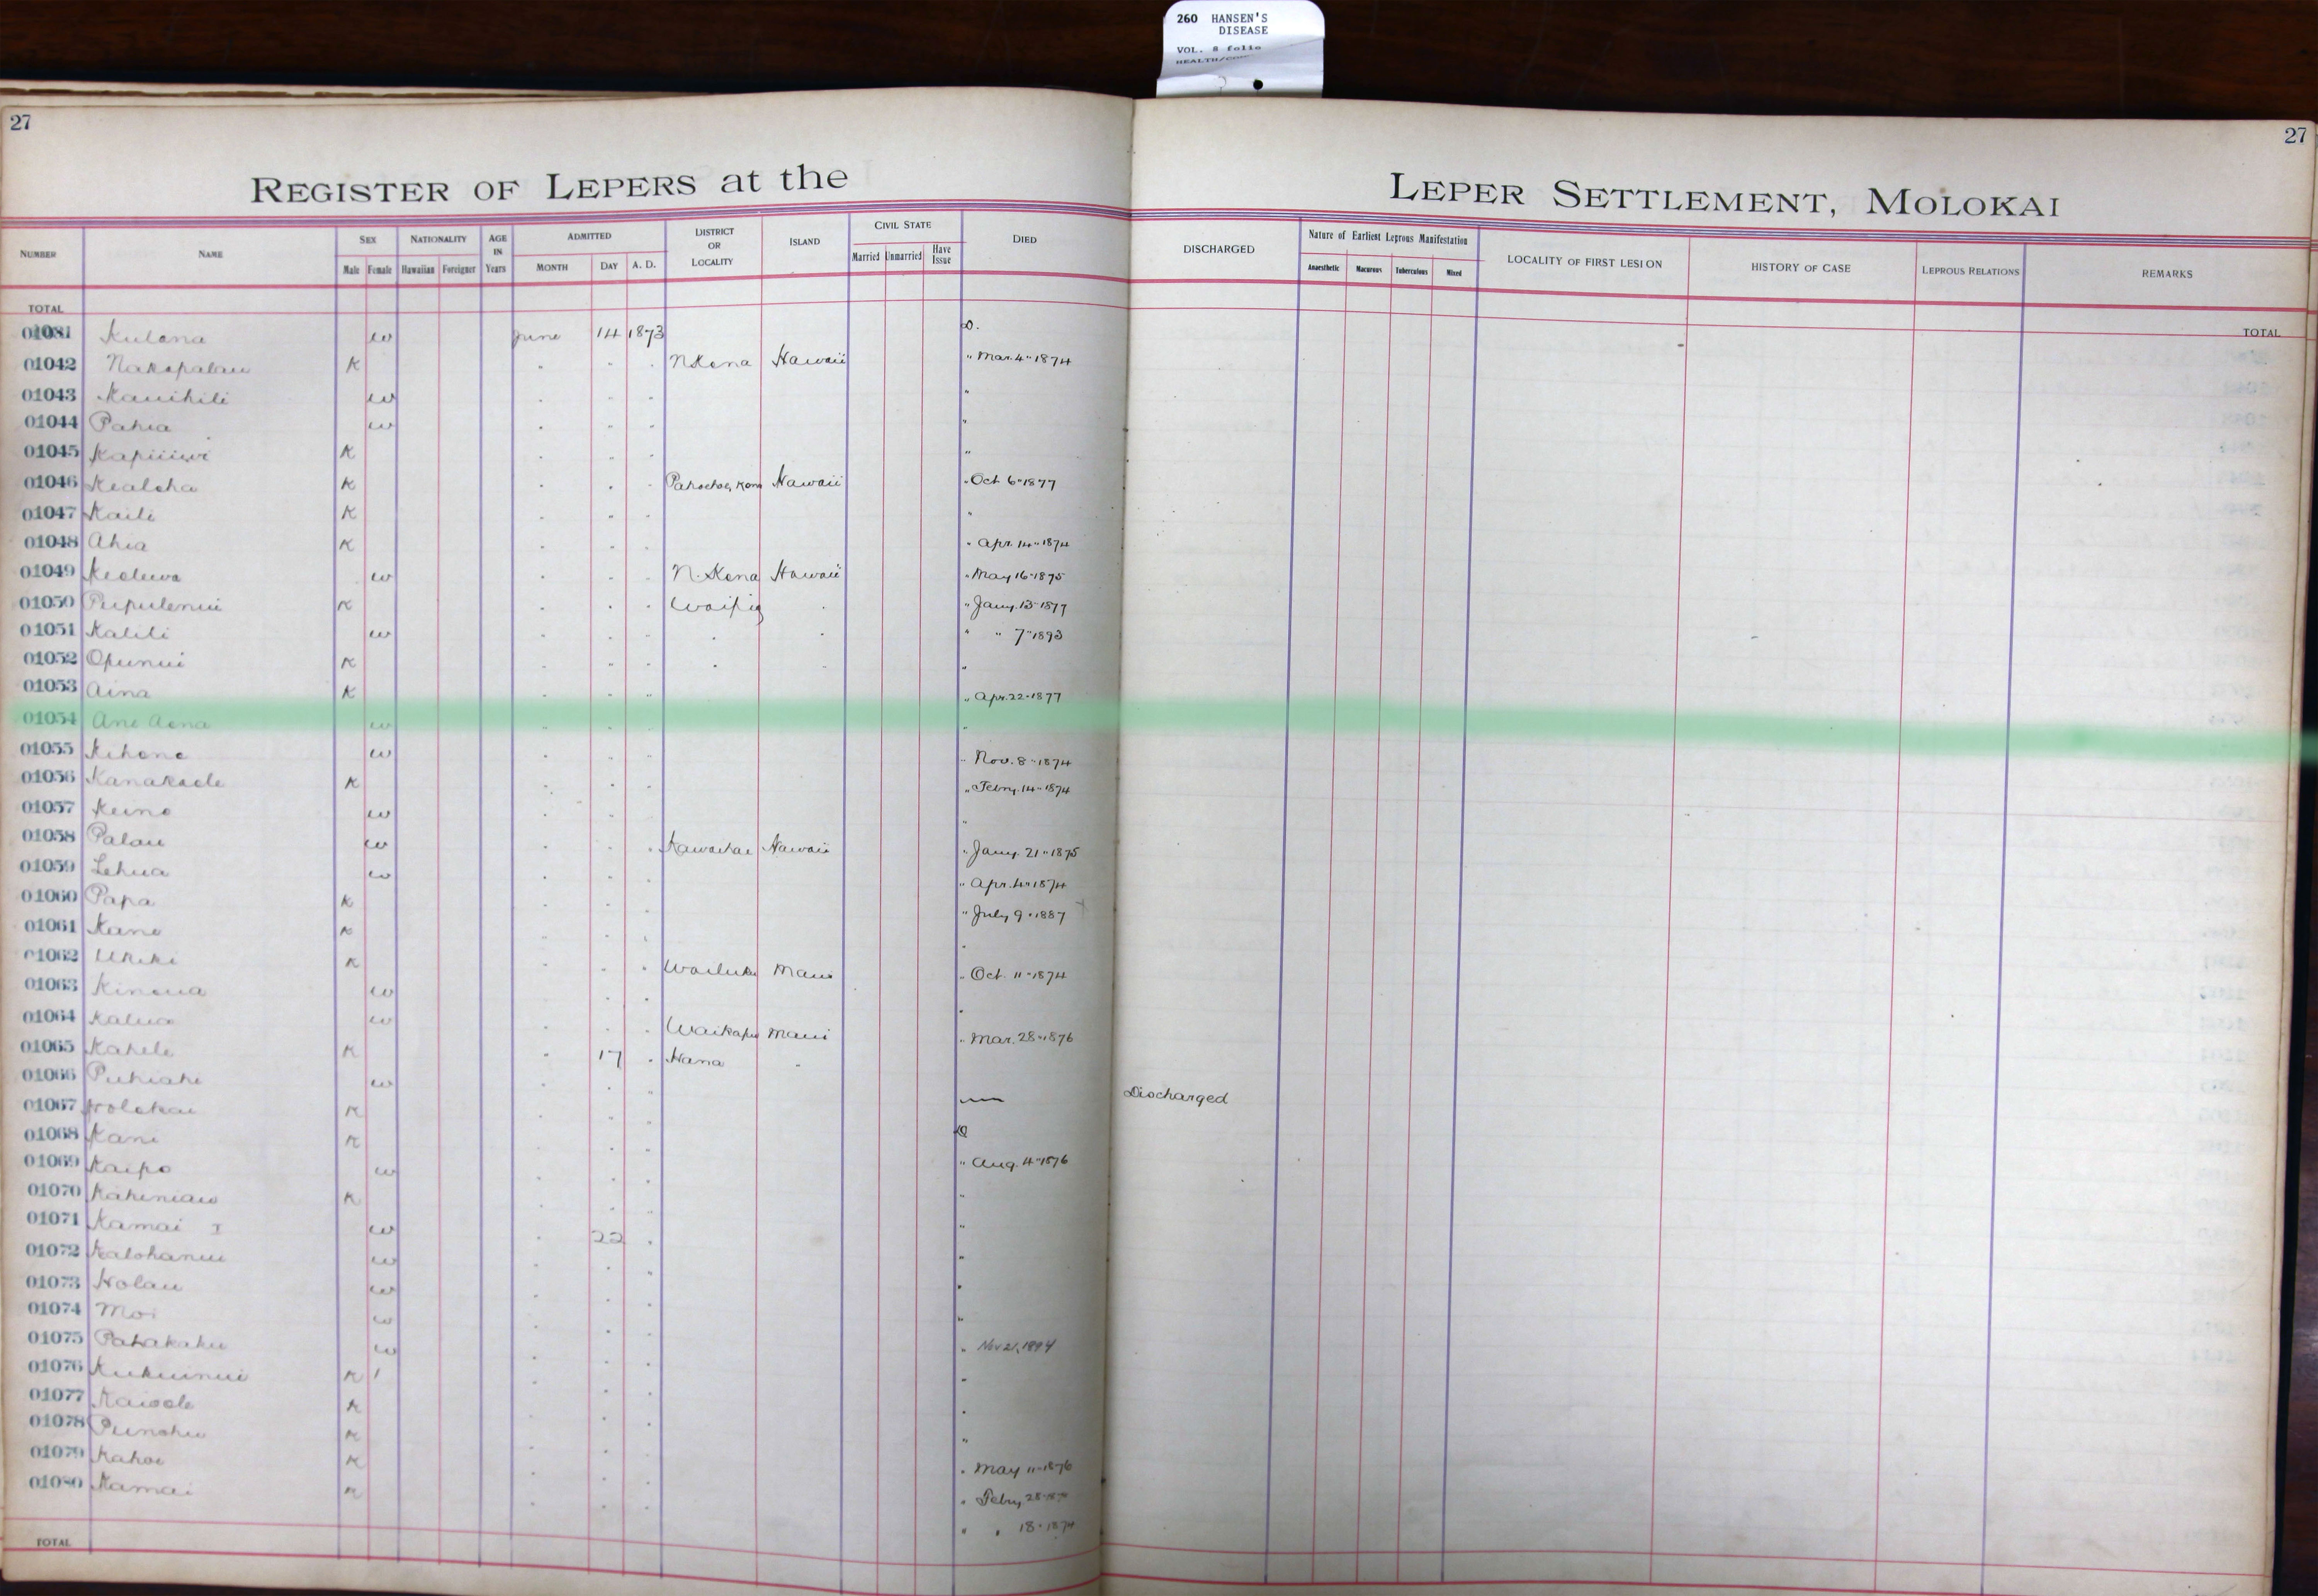 260 HANSEN'S
DISEASE
VOL. 8 folio
27
27
REGISTER OF LEPERS at the LEPER SETTLEMENT, MOLOKAI
NUMBER NAME SEX Male Female NATIONALITY Hawaiian Foreigner AGE IN Years ADMITTED MONTH DAY A. D. DISTRICT OR LOCALITY ISLAND CIVIL STATE Married Unmarried Have Issue DIED DISCHARGED Nature of Earliest Leprous Manifestation Anaesthetic Macurous Tuberculous Mixed LOCALITY OF FIRST LESION HISTORY OF CASE LEPROUS RELATIONS REMARKS
TOTAL TOTAL
Kulana w June 14 1873 D.
01042 Nakapalau K " " " N Kona Hawaii " Mar. 4" 1874
01043 Kauihili w " " " "
01044 Pahia w " " " "
01045 K " " " "
01046 Kealoha K " " " Hawaii " Oct 6" 1877
01047 Kaili K " " " "
01048 Ahia K " " " " Apr. 14" 1874
01049 w " " " N. Kona Hawaii " May 16" 1875
01050 Pupulenui K " " " " Jany. 13" 1877
01051 Kalili w " " " " " " " 7" 1893
01052 Opunui K " " " " " "
01053 Aina K " " " " Apr. 22" 1877
01054 Ane Aona w " " " "
01055 w " " " " Nov. 8" 1874
01056 Kanakaole K " " " " Febry. 14" 1874
01057 w " " " "
01058 Palau w " " " Kawaihae Hawaii " Jany. 21" 1875
01059 Lehua w " " " " Apr. 4" 1874
01060 Papa K " " " " July 9" 1887
01061 Kane K " " " "
01062 K " " " Wailuku Maui " Oct. 11" 1874
01063 Kinoua w " " " "
01064 Kalua w " " " Waikapu Maui " Mar. 28" 1876
01065 Kahele K " 17 " Hana "
01066 w " " " Discharged
01067 K " " " D
01068 Kani K " " " " Aug. 4" 1876
01069 Kaipo w " " " "
01070 K " " " "
01071 Kamai I w " 22 " "
01072 Kalohanui w " " " "
01073 Holau w " " " "
01074 Moi w " " " " Nov 21, 1894
01075 Pahakaku w " " " "
01076 Kukuinui K 1 " " " "
01077 Kaiole K " " " "
01078 K " " " " May 11" 1876
01079 Kahoe K " " " " Febry 28"
01080 Kamai K " " " " " 18" 1874
TOTAL